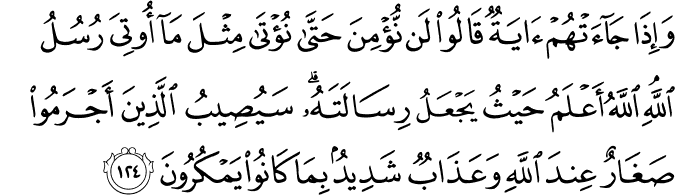 وَإِذَا جَآءَتْهُمْ ءَايَةٌ قَالُوا۟ لَن نُّؤْمِنَ حَتَّىٰ نُؤْتَىٰ مِثْلَ مَآ أُوتِىَ رُسُلُ
ٱللَّهِ ۘ ٱللَّهُ أَعْلَمُ حَيْثُ يَجْعَلُ رِسَالَتَهُۥ ۗ سَيُصِيبُ ٱلَّذِينَ أَجْرَمُوا۟
صَغَارٌ عِندَ ٱللَّهِ وَعَذَابٌ شَدِيدٌۢ بِمَا كَانُوا۟ يَمْكُرُونَ ١٢٤